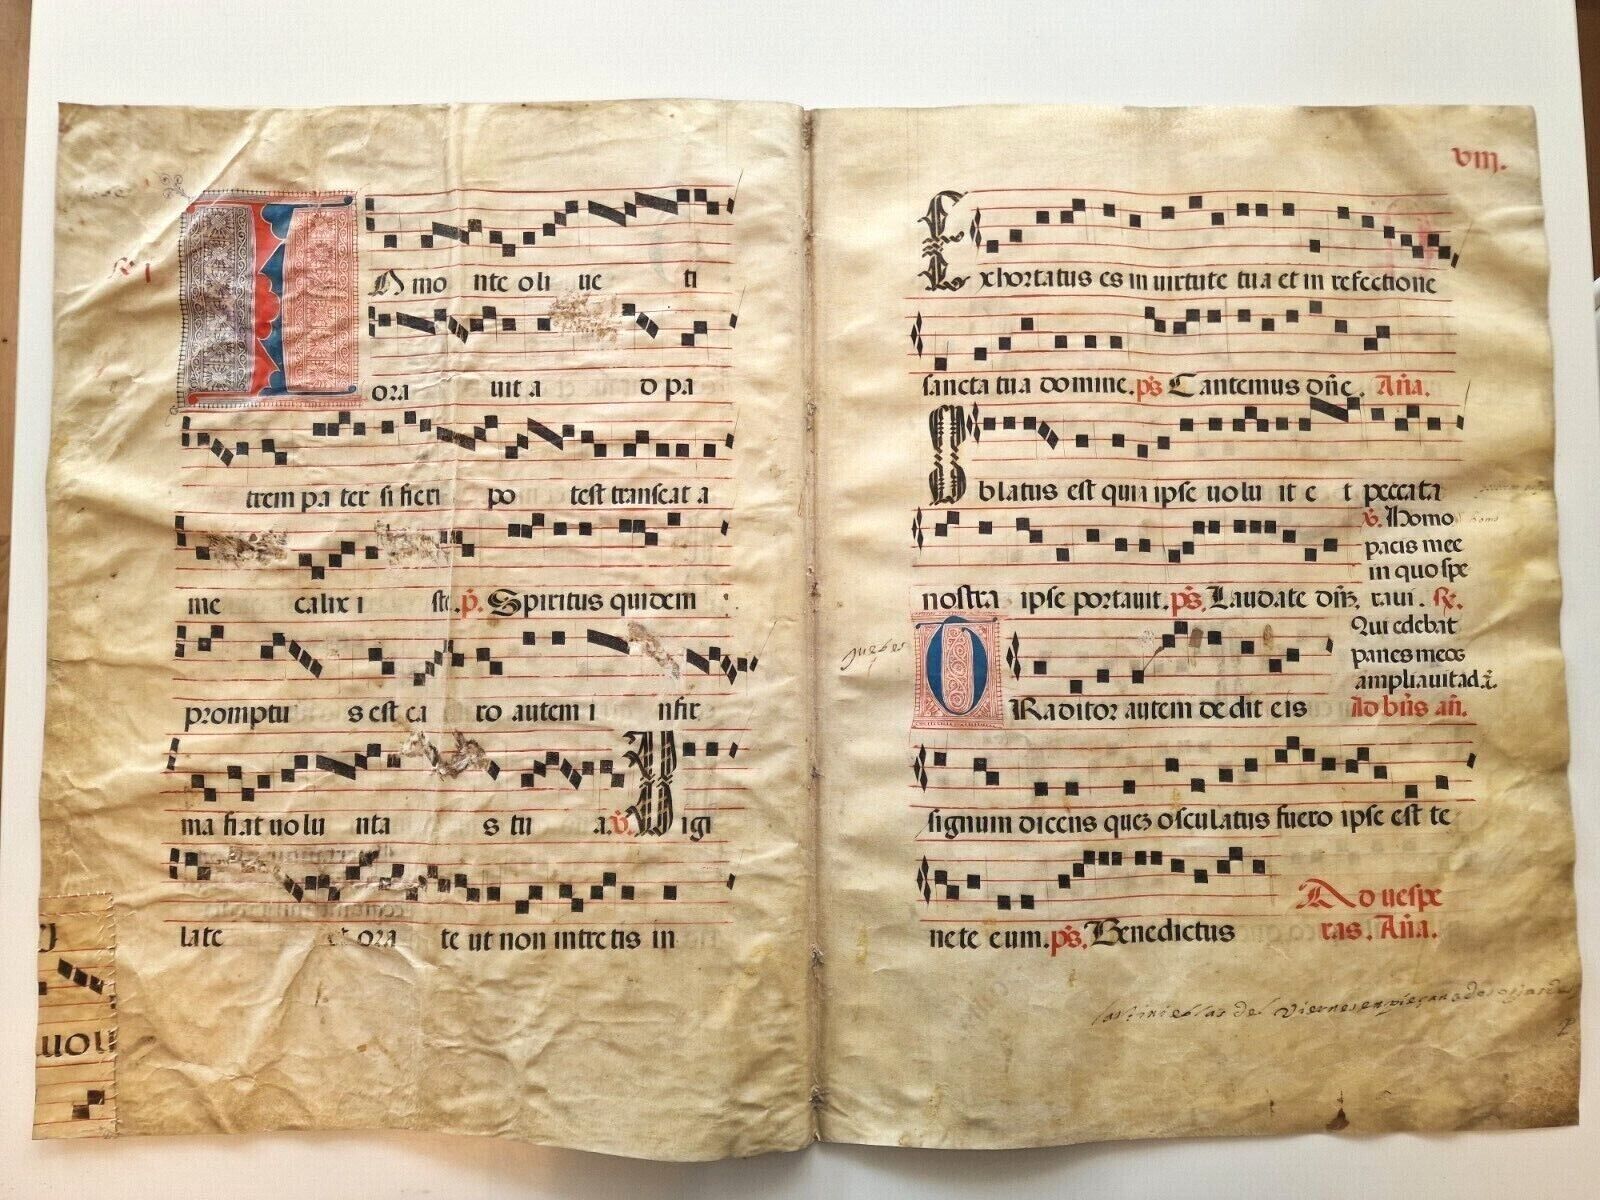 ℟ I
IN monte oli ue ti
ora uit a d pa
trem pa ter si fieri po test transeat a
me calix i ste. p̃. Spiritus quidem
promptu s est ca ro autem i nfir
ma fiat uolu nta s tu a. ℣. Uigi
late et ora te ut non intretis in
uou
viij.
Exhortatus es in uirtute tua et in refectione
sancta tua domine. p̃s Cantemus dñe. Aña.
Oblatus est quia ipse uolu it e t peccata
℣. Homo homo
pacis mee
in quo spe
nostra ipse portauit. p̃s. Laudate dñz. raui. ℟.
Qui edebat
panes meos
ampliauit ad.
juebes
TRaditor autem dedit eis Ad bñs añ.
signum dicens quez osculatus fuero ipse est te
nete eum. p̃s. Benedictus
Ad uespe
ras. Aña.
las tinieblas del Viernes enpieçan a dos ojas de